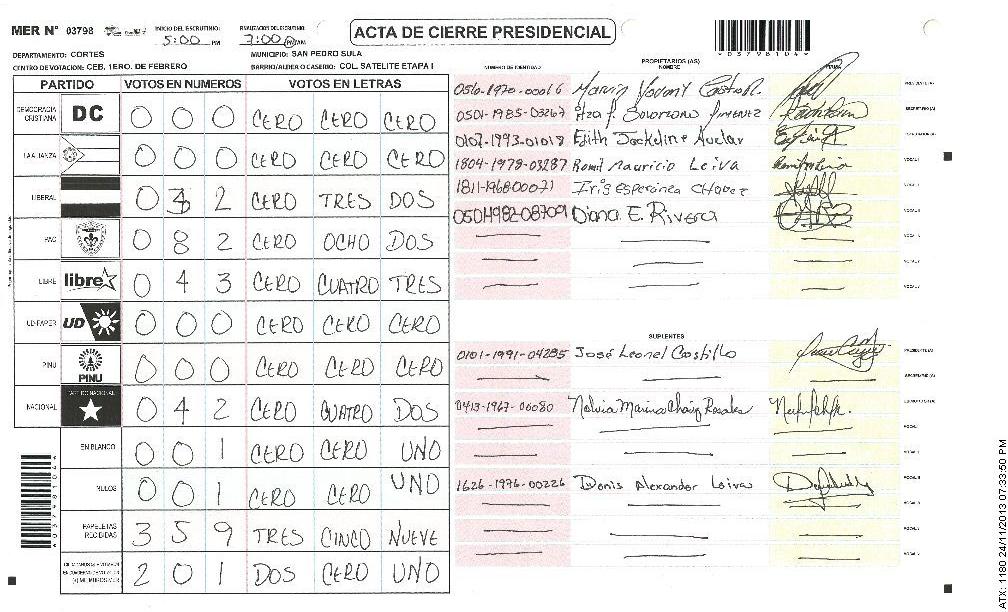 MER Nº 03798
INICIO DEL ESCRUTINIO: 5:00 PM
FINALIZACION DEL ESCRUTINIO: 7:00 PM AM
ACTA DE CIERRE PRESIDENCIAL
*03798104*
DEPARTAMENTO: CORTES
MUNICIPIO: SAN PEDRO SULA
CENTRO DE VOTACION: CEB. 1ERO. DE FEBRERO
BARRIO/ALDEA O CASERIO: COL SATELITE ETAPA I
PARTIDO VOTOS EN NUMEROS VOTOS EN LETRAS
DEMOCRACIA CRISTIANA DC 0 0 0 CERO CERO CERO
LA ALIANZA 0 0 0 CERO CERO CERO
LIBERAL 0 3 2 CERO TRES DOS
PAC 0 8 2 CERO OCHO DOS
LIBRE libre 0 4 3 CERO CUATRO TRES
UD-FAPER UD 0 0 0 CERO CERO CERO
PINU PINU 0 0 0 CERO CERO CERO
NACIONAL PARTIDO NACIONAL 0 4 2 CERO CUATRO DOS
EN BLANCO 0 0 1 CERO CERO UNO
NULOS 0 0 1 CERO CERO UNO
PAPELETAS RECIBIDAS 3 5 9 TRES CINCO NUEVE
2 0 1 DOS CERO UNO
*03798104*
NUMERO DE IDENTIDAD PROPIETARIOS (AS) NOMBRE FIRMA
PRESIDENTE (A)
0501-1985-03267 SOLORZANO JIMENEZ SECRETARIO (A)
0107-1993-01018 Edith Jackeline Avelar
1804-1978-03287 Romil Mauricio Leiva VOCAL I
1811-1968-00071 Iris Esperanza Chavez
0501-1982-08709 Diana E. Rivera
SUPLENTES
0101-1991-04285 José Leonel Castillo PRESIDENTE (A)
SECRETARIO (A)
0413-1967-00080 Nolvia Marina
1626-1976-00226 Donis Alexander Leiva
ATX: 1180 24/11/2013 07:33:50 PM